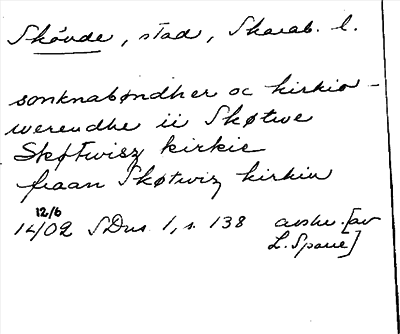 Skövde, stad, Skarab. l.
sonknabøndher oc kirkio-
werendhe ii Skøtwe
Skøtwisz kirkie
fraan Skøtwiz kirkiu
12/6
1402 SDns 1, s. 138 avskr. [av
L. Spaue]